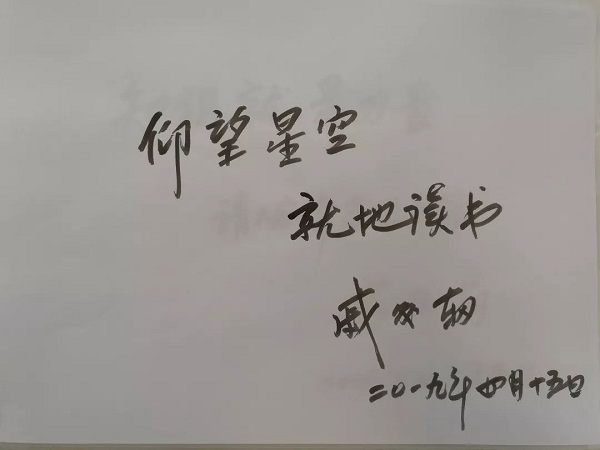 仰望星空
就地读书
戚发轫
二〇一九年四月十五日